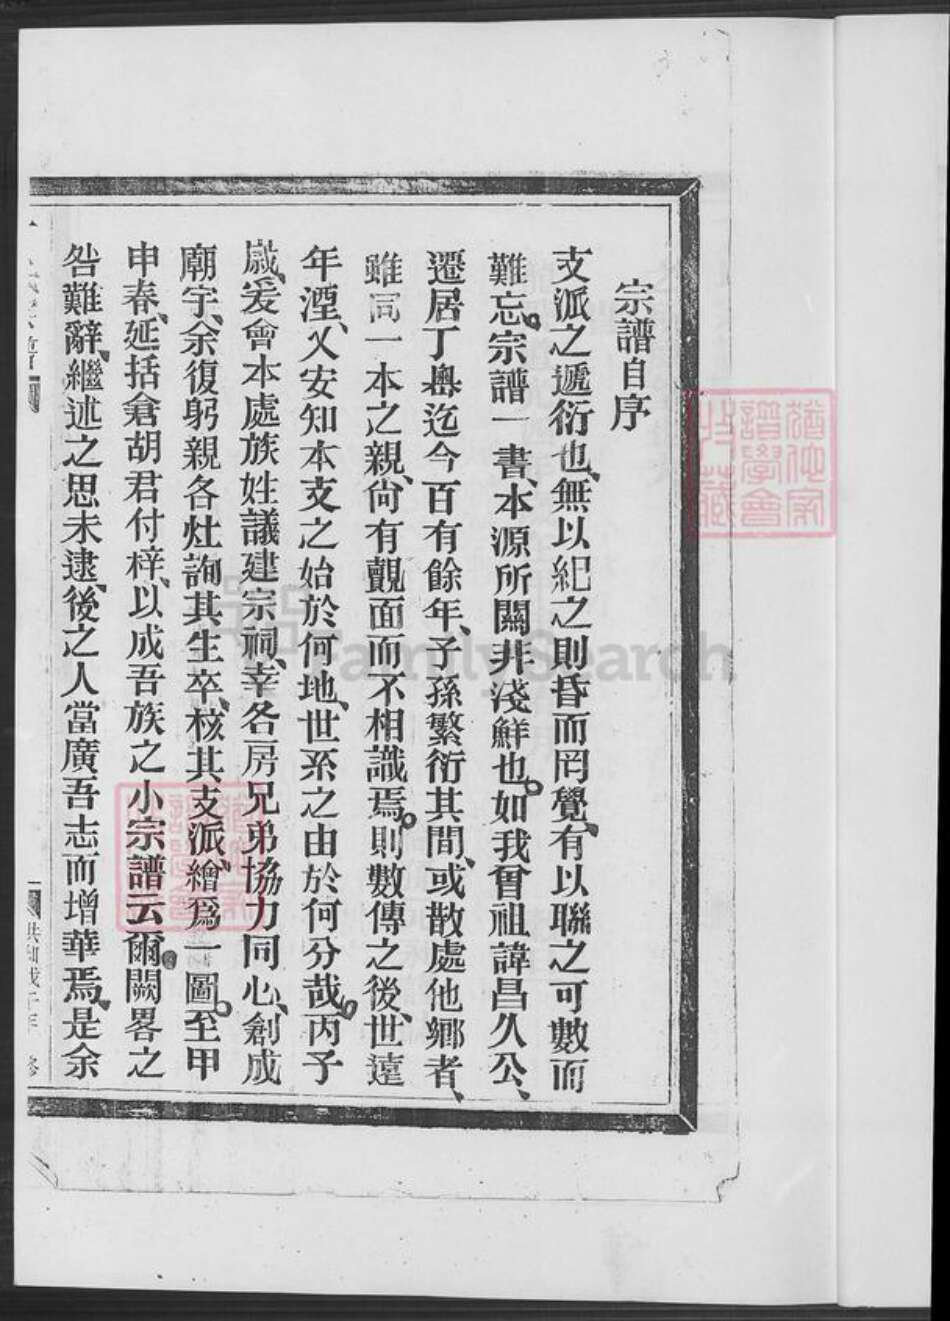 宗譜自序
支派之遞衍也、無以紀之則昏而罔覺、有以聯之可數而
難忘。宗譜一書、本源所關非淺鮮也。如我曾祖諱昌久公、
遷居丁㟲迄今百有餘年、子孫繁衍其間、或散處他鄉者、
雖同一本之親、尙有覿面而不相識焉。則數傳之後、世遠
年湮、又安知本支之始於何地、世系之由於何分哉。丙子
歲、爰會本處族姓議建宗祠、幸各房兄弟協力同心、創成
廟宇、余復躬親各灶詢其生卒、核其支派、繪爲一圖。至甲
申春、延括倉胡君付梓、以成吾族之小宗譜云爾。闕畧之
咎難辭、繼述之思未逮、後之人當廣吾志而增華焉、是余
譜學會
收藏
FamilySearch